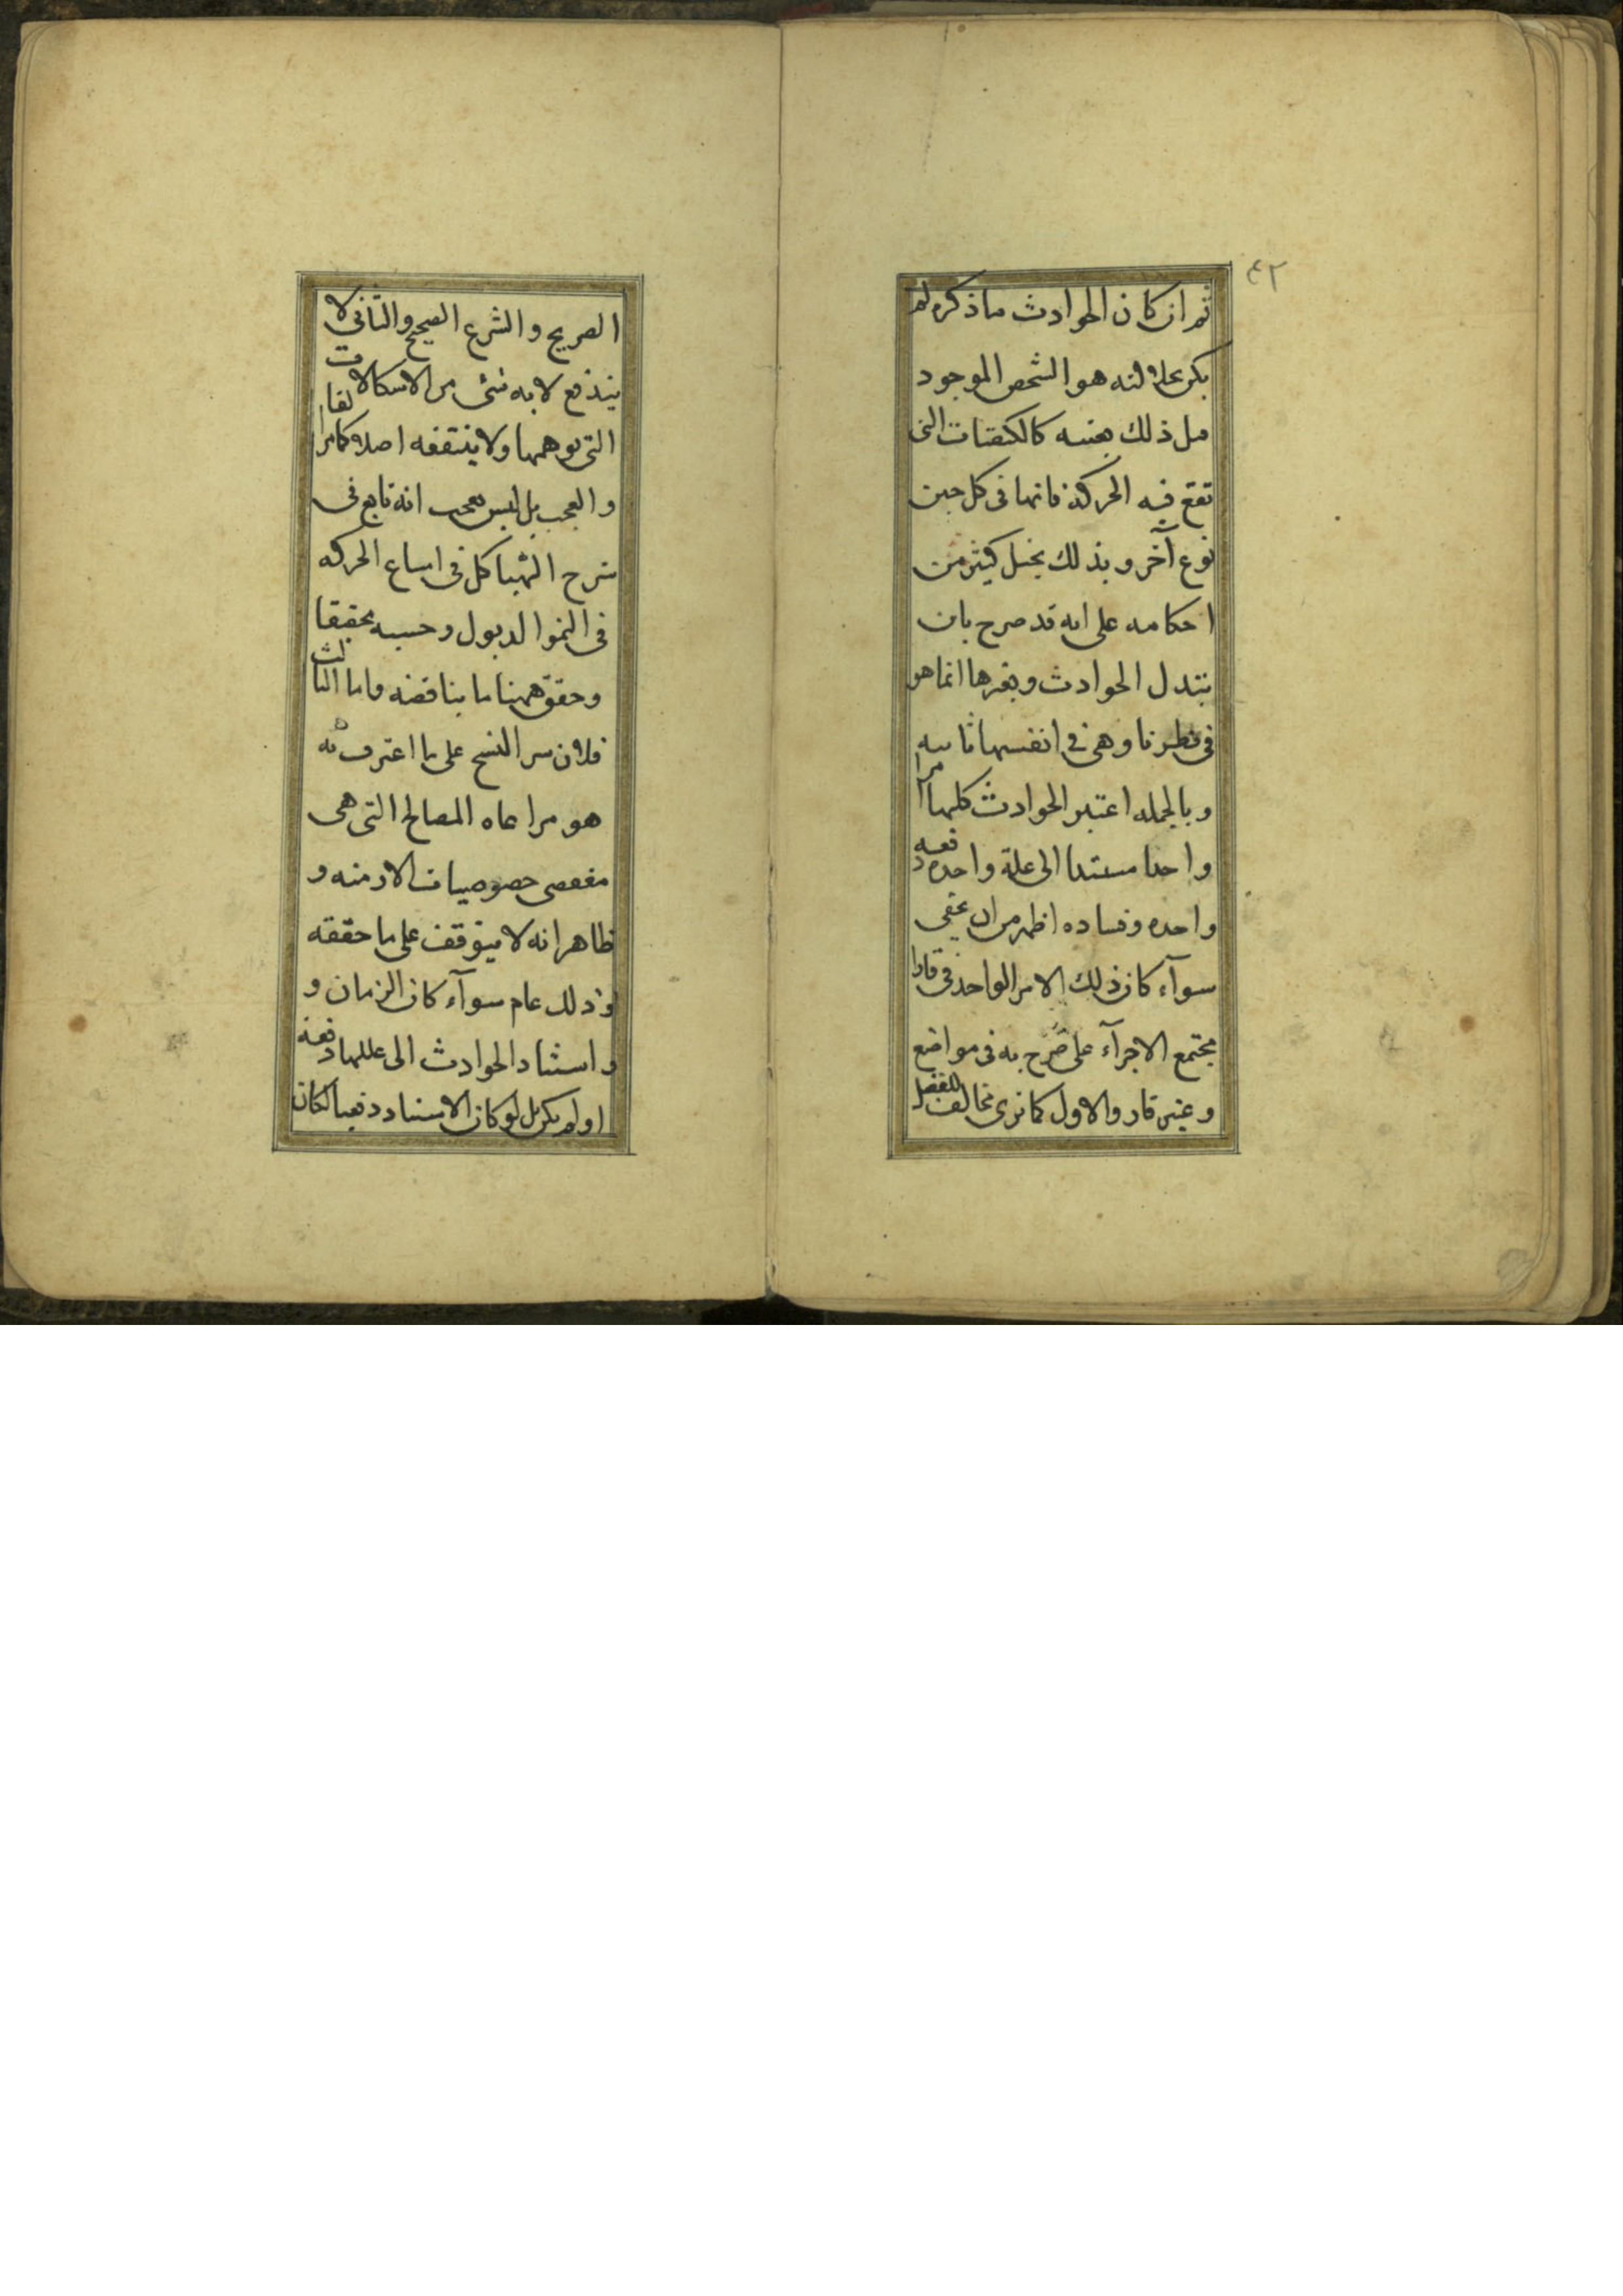 ٤٢
ثم ان كان الحوادث ما ذكره لم
يكن محلا لنه هو الشخص الموجود
مل ذلك بعينه كالكيفيات التى
تقع فيه الحركة فانها فى كل حين
نوع آخر و بذلك يختل كثير من
احكامه على انه قد صرح بان
تبدل الحوادث و تغيرها انما هو
فى نظرنا و هى فى انفسها ثابته
و بالجمله اعتبر الحوادث كلها امرا
واحدا مستندا الى علة واحده دفعه
واحده و فساده اظهر من ان يخفى
سوآء كان ذلك الامر الواحد فى قارا
مجتمع الاجزآء على صرح به فى مواضع
و غير قار و الاول كما ترى مخالف للعقل
الصريح و الشرع الصحيح و الثانى لا
يندفع لا به شئ من الاشكالات
التى توهمها و لا ينتفعه اصلا كما مر انفا
و العجب بل ليس بعجب انه تابع فى
شرح الهياكل فى امتناع الحركه
فى النمو الذبول و حسبه تحقيقا
و حقق ههنا ما يناقضه و اما الثالث
فلان سر النسخ على ما اعترف به
هو مراعاه المصالح التى هى
مقتضى خصوصيات الازمنه و
ظاهر انه لا يتوقف على ما حققه
و ذلك عام سوآء كان الزمان و
و استناد الحوادث الى عللها دفعة
او لم يكن بل لو كان الاستناد دفعيا لكان